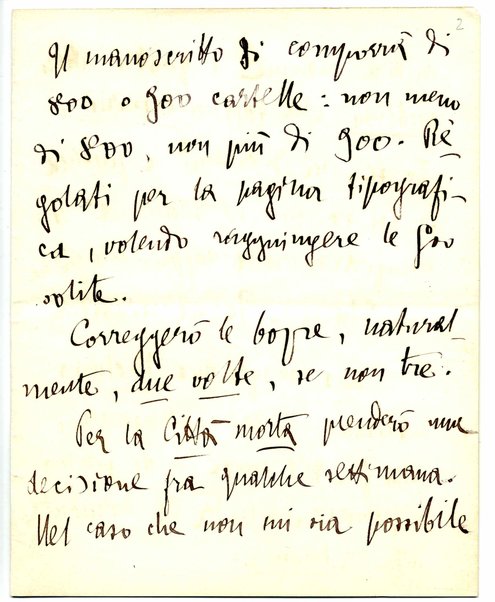 2
Il manoscritto si comporrà di
800 o 900 cartelle: non meno
di 800, non più di 900. Re-
golati per la pagina tipografi-
ca, volendo raggiungere le 500
solite.
Correggerò le bozze, natural-
mente, due volte, se non tre.
Per la Città morta prenderò una
decisione fra qualche settimana.
Nel caso che non mi sia possibile